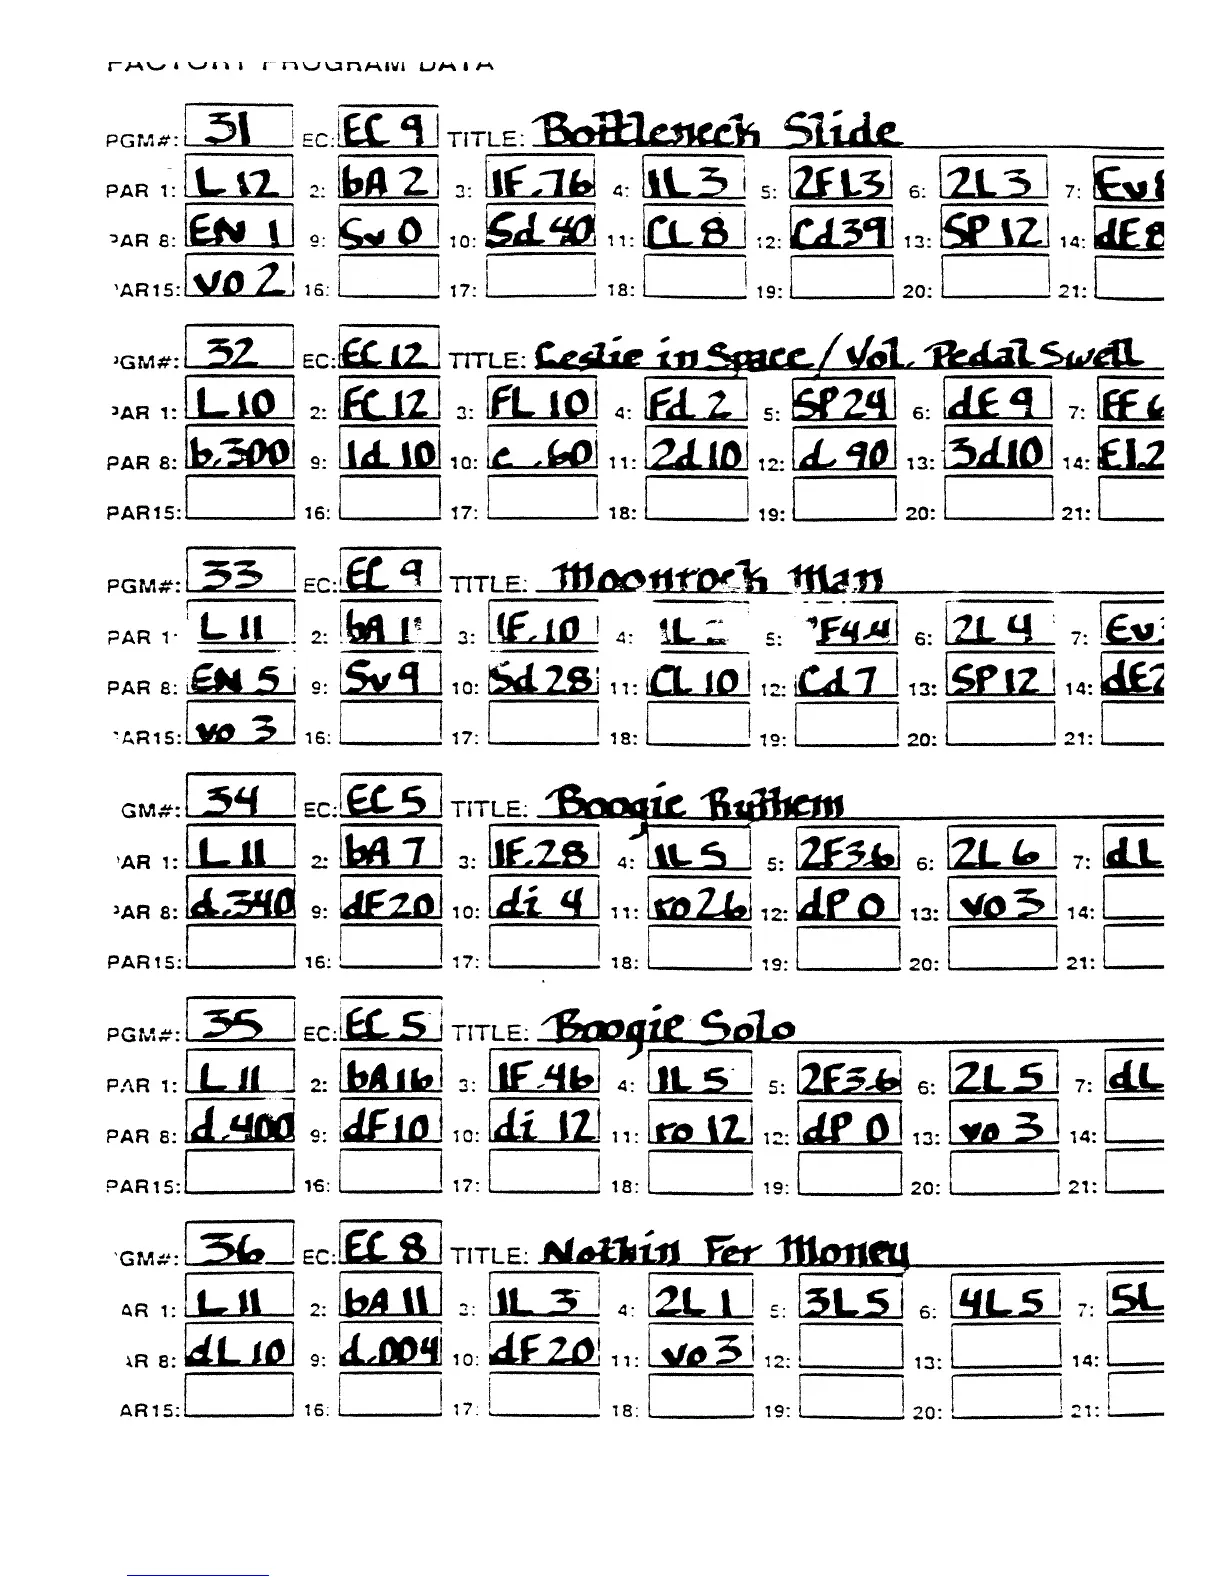 FACTORY PROGRAM DATA
PGM#: 31 EC: EC 9 TITLE: Bottleneck Slide
PAR 1: L 12 2: bA 2 3: 1F.76 4: 1L 3 5: 2F1.3 6: 2L 3 7:
PAR 8: EN 1 9: Sv 0 10: Sd 40 11: CL 8 12: Cd39 13: SP 12 14: dE 8
AR15: vo 2 16: 17: 18: 19: 20: 21:
GM#: 32 EC: EC 12 TITLE: Leslie in Space / Vol. Pedal Swell
AR 1: L 10 2: FC 12 3: FL 10 4: Fd 2 5: SP24 6: dE 9 7: FF 6
PAR 8: b.300 9: 1d 10 10: c .60 11: 2d 10 12: d. 90 13: 3d10 14: F1.2
PAR15: 16: 17: 18: 19: 20: 21:
PGM#: 33 EC: EC 9 TITLE: Moonrock Man
PAR 1: L 11 2: bA 3: 1F.10 4: 1L 5: F4.4 6: 2L 4 7: Ev
PAR 8: EN 5 9: Sv 9 10: Sd 28 11: CL 10 12: Cd 7 13: SP 12 14: dE2
AR15: vo 3 16: 17: 18: 19: 20: 21:
GM#: 34 EC: EC 5 TITLE: Boogie Rythem
AR 1: L 11 2: bA 7 3: 1F.28 4: 1L 5 5: 2F3.6 6: 2L 6 7: dL
AR 8: d.340 9: dF20 10: di 4 11: ro26 12: dP 0 13: vo 3 14:
PAR15: 16: 17: 18: 19: 20: 21:
PGM#: 35 EC: EC 5 TITLE: Boogie Solo
PAR 1: L 11 2: bA16 3: 1F.46 4: 1L 5 5: 2F3.6 6: 2L 5 7: dL
PAR 8: d.400 9: dF10 10: di 12 11: ro 12 12: dP 0 13: vo 3 14:
PAR15: 16: 17: 18: 19: 20: 21:
GM#: 36 EC: EC 8 TITLE: Nothin Fer Money
AR 1: L 11 2: bA 11 3: 1L 3 4: 2L 1 5: 3L 5 6: 4L 5 7: 5L
R 8: dL 10 9: d.004 10: dF 20 11: vo 3 12: 13: 14:
AR15: 16: 17: 18: 19: 20: 21: